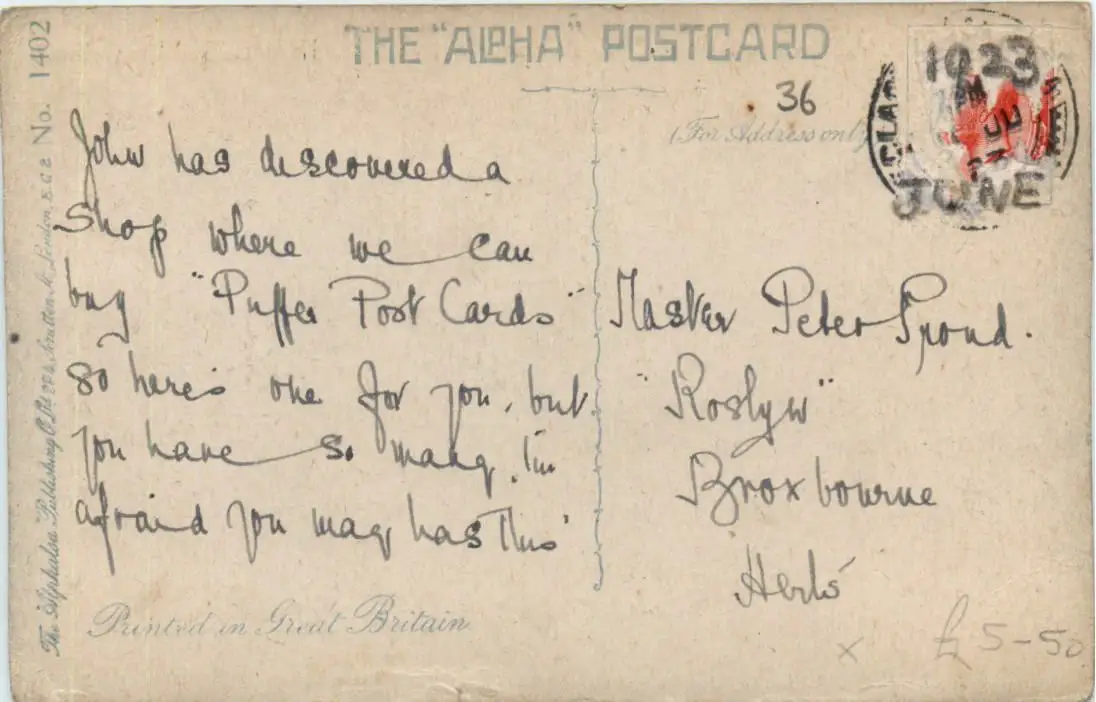 THE "ALPHA" POSTCARD
1923
36
(For Address only)
JUNE
John has discovered a
Shop where we can
buy "Puffer Post Cards"
so here's one for you, but
you have so many, I'm
afraid you may has this
Master Peter Spond.
"Roslyn"
Broxbourne
Herts
Printed in Great Britain
x £5-50
The Alphalsa Publishing London, E.C.2 No. 1402